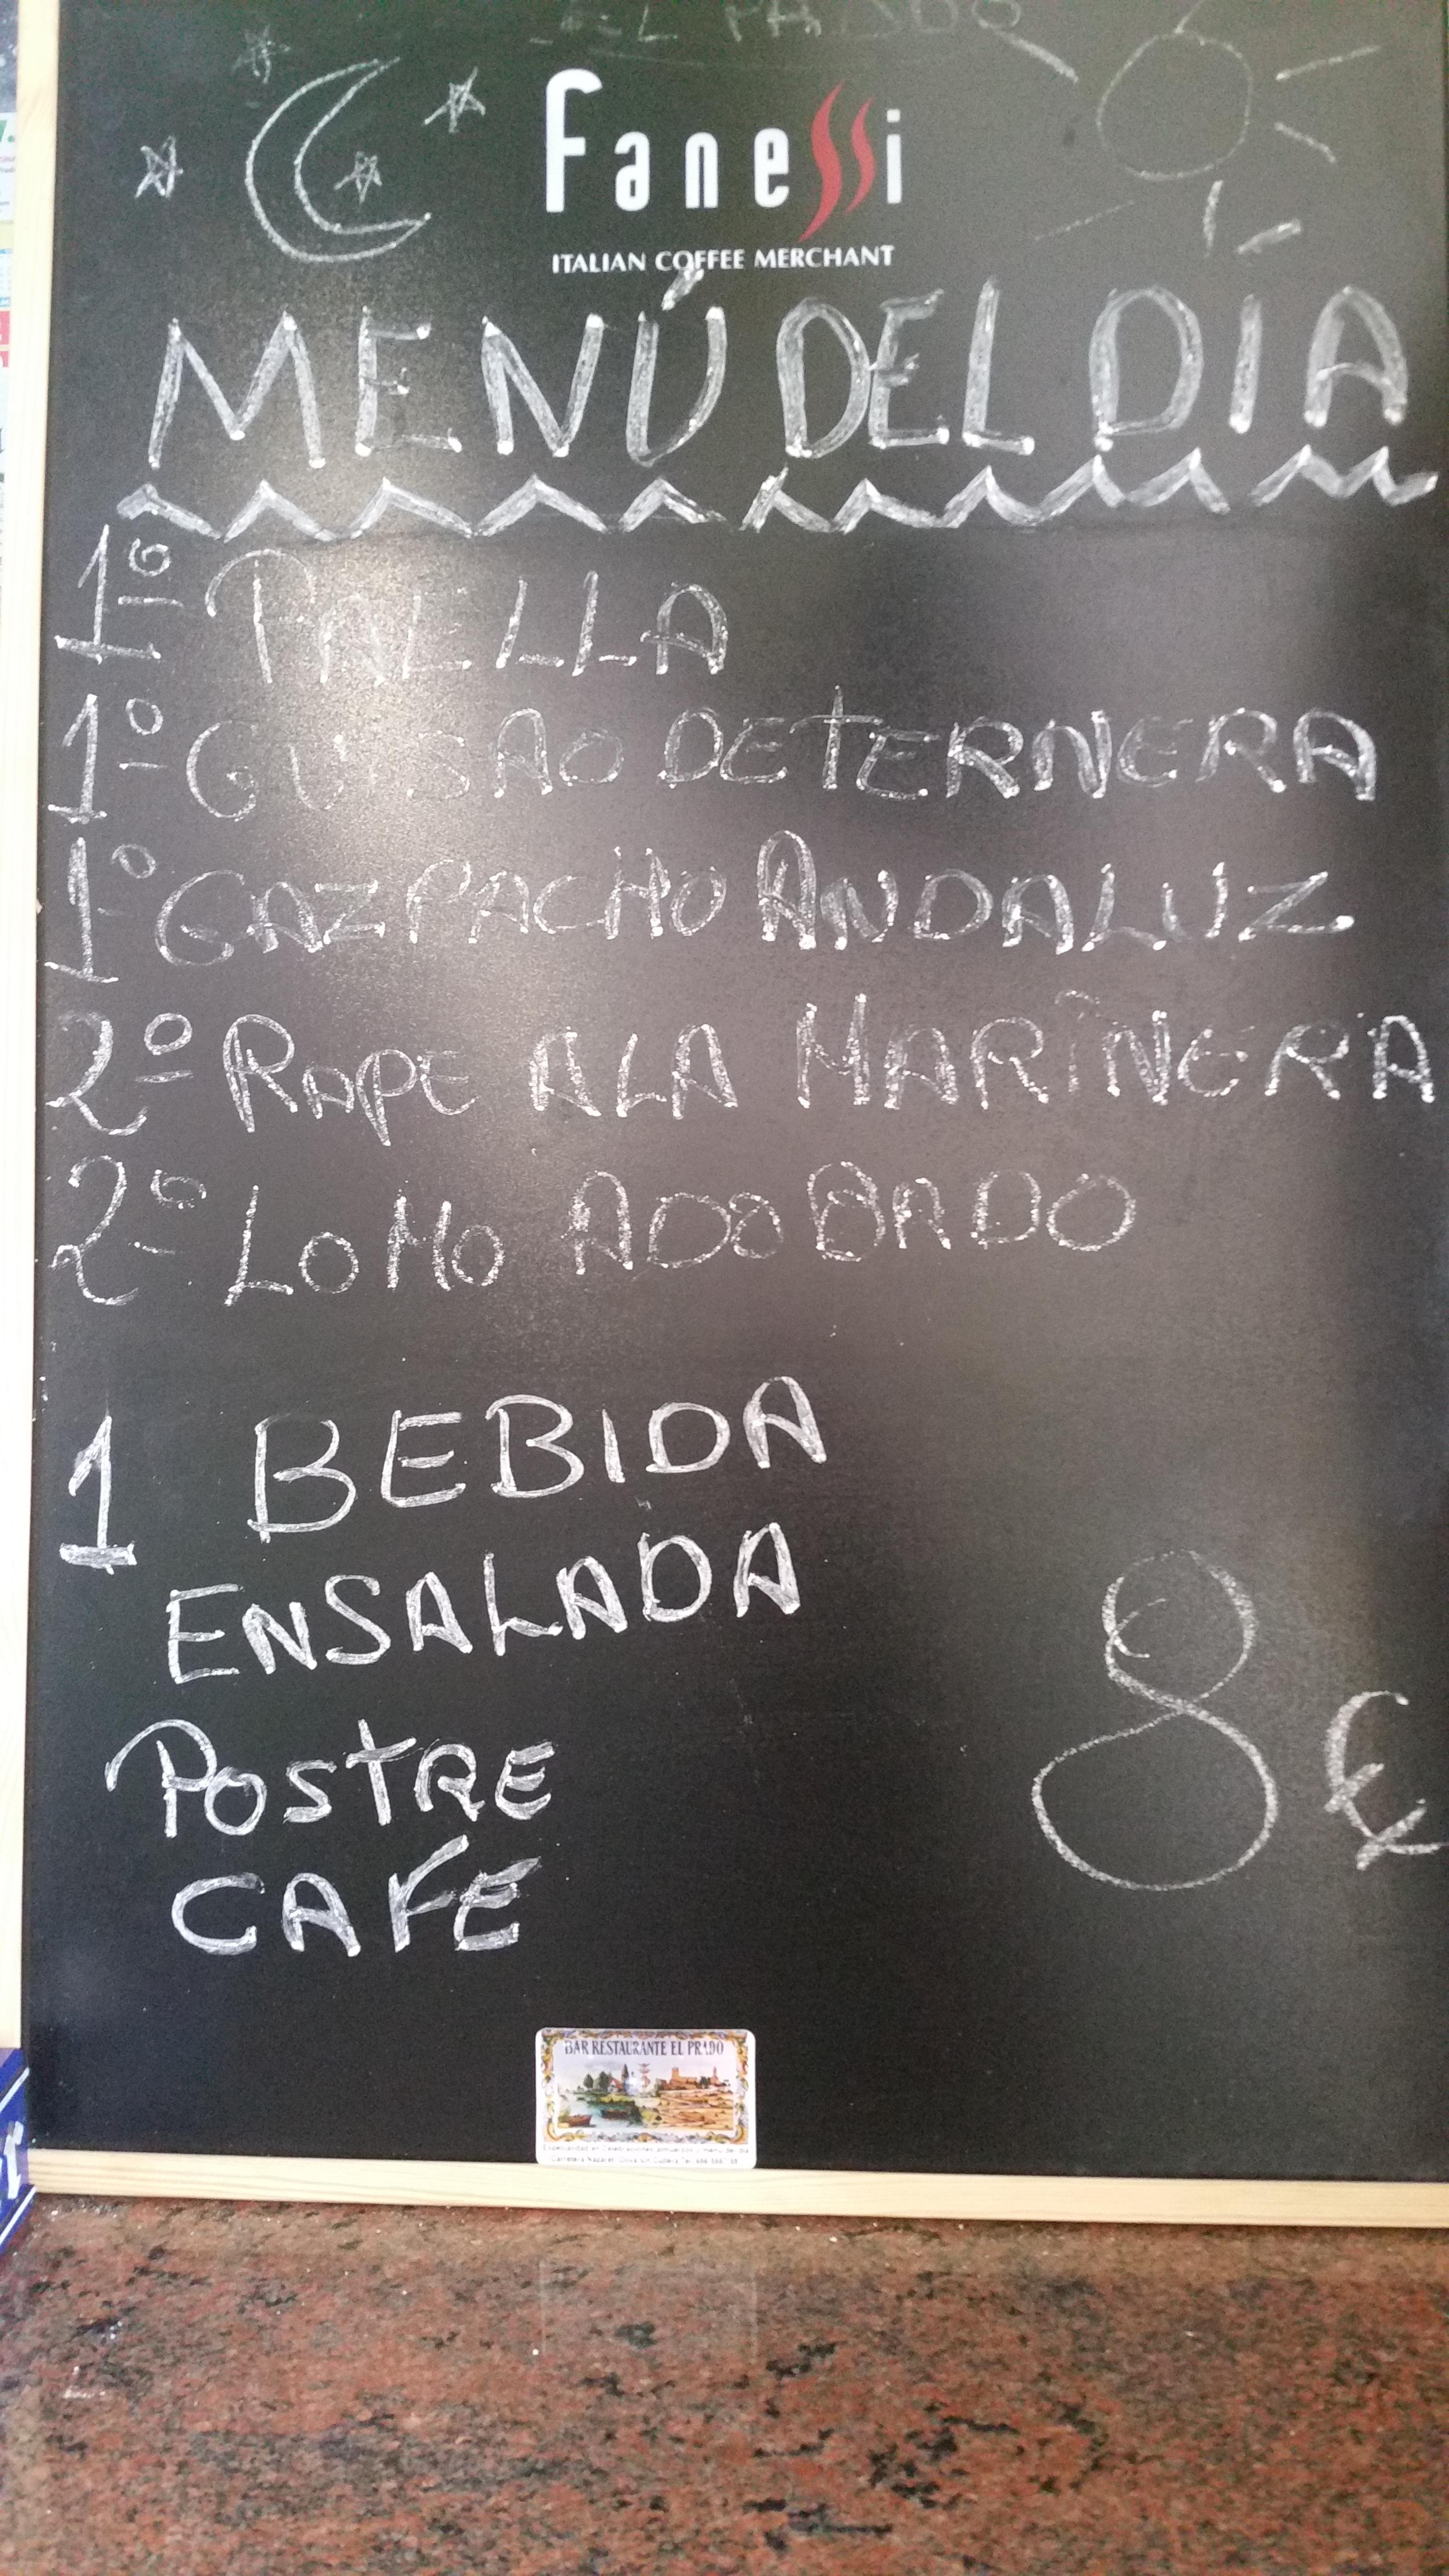 EL PRADO
Fanessi
ITALIAN COFFEE MERCHANT
MENÚ DEL DÍA
1º PAELLA
1º GUISAO DE TERNERA
1º GAZPACHO ANDALUZ
2º RAPE A LA MARINERA
2º LOMO ADOBADO
1 BEBIDA
ENSALADA
POSTRE
CAFE
8 €
BAR RESTAURANTE EL PRADO